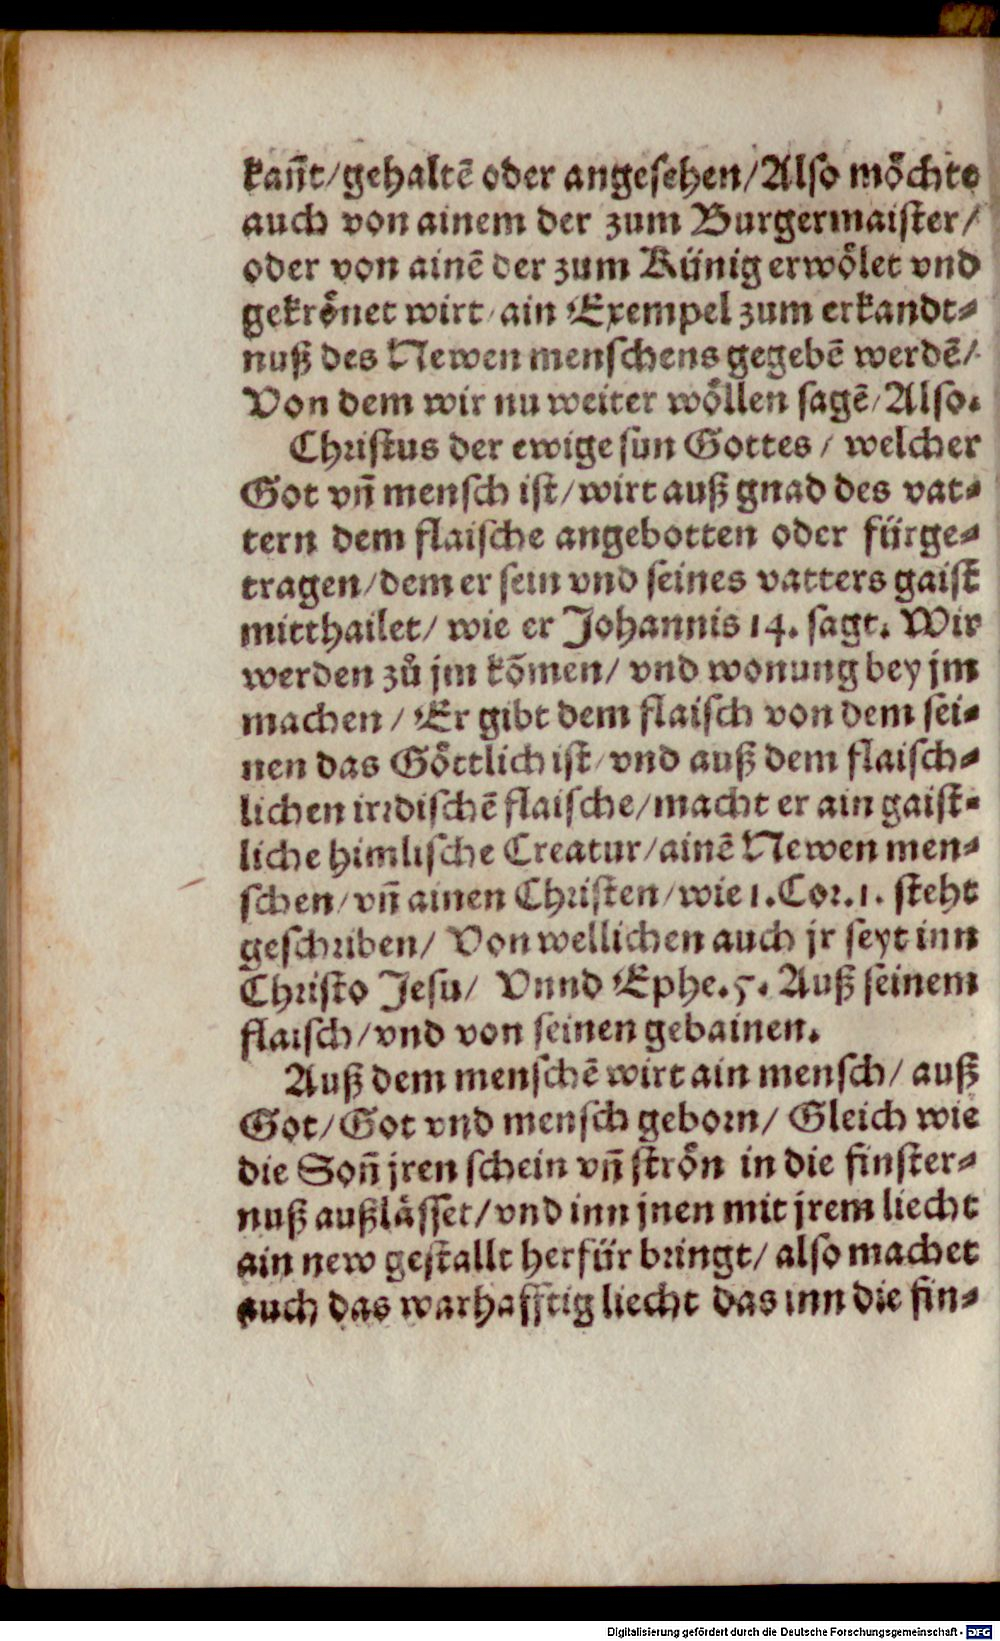 kañt/gehaltē oder angesehen/Also möchte
auch von ainem der zum Burgermaister/
oder von ainē der zum Künig erwölet vnd
gekrönet wirt/ain Exempel zum erkandt⸗
nuß des Newen menschens gegebē werdē/
Von dem wir nu weiter wöllen sagē/Also.
Christus der ewige sun Gottes/ welcher
Got vñ mensch ist/wirt auß gnad des vat⸗
tern dem flaische angebotten oder fürge⸗
tragen/dem er sein vnd seines vatters gaist
mitthailet/ wie er Johannis 14. sagt. Wir
werden zů jm kõmen/ vnd wonung bey jm
machen/ Er gibt dem flaisch von dem sei⸗
nen das Göttlich ist/vnd auß dem flaisch⸗
lichen irrdischē flaische/macht er ain gaist⸗
liche himlische Creatur/ainē Newen men⸗
schen/vñ ainen Christen/wie 1.Cor.1. steht
geschriben/ Von wellichen auch jr seyt inn
Christo Jesu/ Vnnd Ephe.5. Auß seinem
flaisch/vnd von seinen gebainen.
Auß dem menschē wirt ain mensch/ auß
Got/Got vnd mensch geborn/ Gleich wie
die Soñ jren schein vñ strön in die finster⸗
nuß außlässet/vnd inn jnen mit jrem liecht
ain new gestallt herfür bringt/ also machet
auch das warhafftig liecht das inn die fin⸗
Digitalisierung gefördert durch die Deutsche Forschungsgemeinschaft - DFG